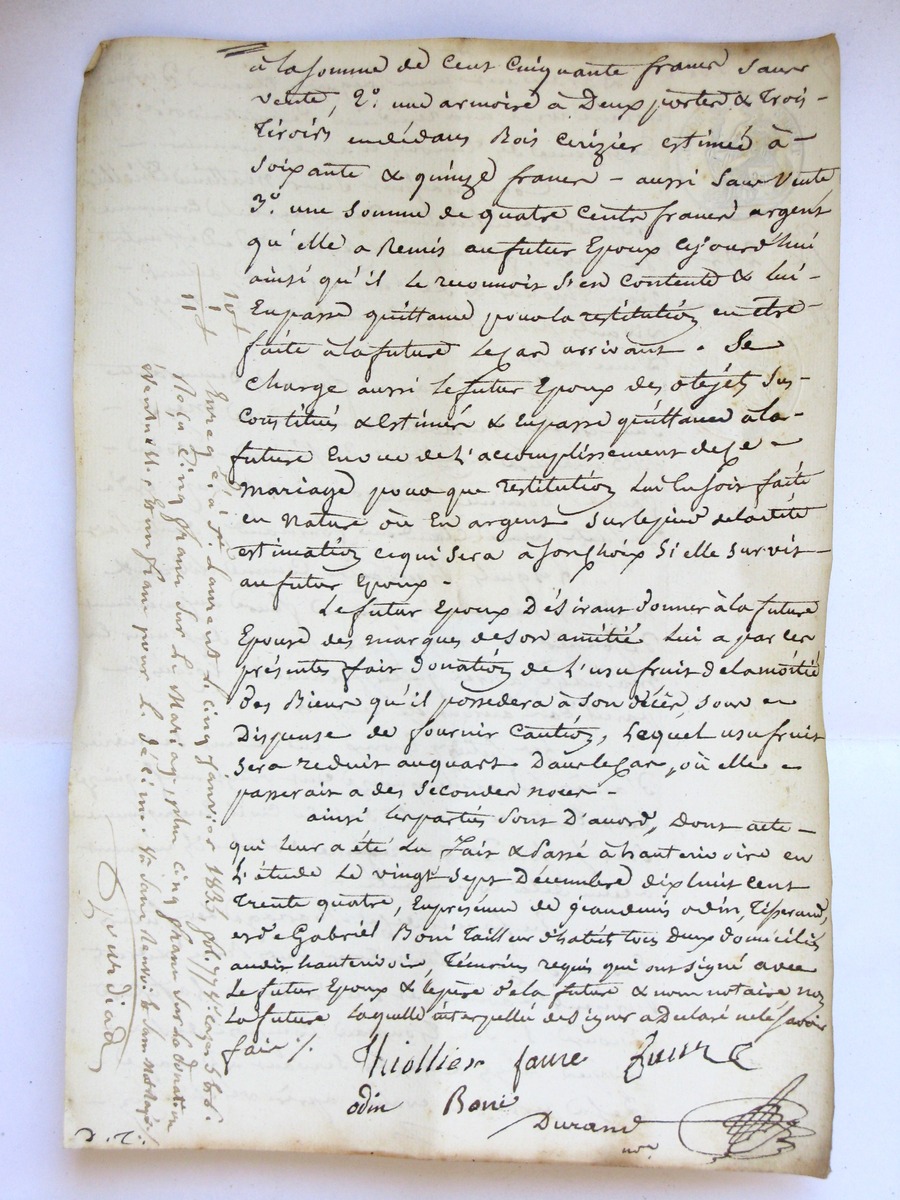 à la somme de cent cinquante francs sans
vente, 2º. une armoire à Deux portes & trois
tiroirs endédans Bois cerizier estimée à
soixante & quinze francs - aussi sans vente
3º. une somme de quatre cents francs argent
qu'elle a Remis au futur Epoux cejourd'hui
ainsi qu'il le reconnoit s'en contente & lui
En passe quittance pour la restitution en être
faite à la future le cas arrivant. Se
charge aussi le futur Epoux des objets sus
Constitués & Estimés & En passe quittance à la
future En vue de l'accomplissement de ce
mariage pour que restitution lui En soit faite
en nature où En argent sur le pied de ladite
estimation ce qui sera à son choix si elle survit
au futur Epoux.
Le futur Epoux Désirant donner à la future
Epouse des marques de son amitié lui a par ces
présentes fait donation de l'usufruit de la moitié
des Biens qu'il possedera à son décès, sous
Dispense de fournir Caution, lequel usufruit
sera reduit au quart Dans le cas, où elle
passerait a des secondes noces.
ainsi les parties sont D'accord, Dont acte
qui leur a été lu fait & Passé à hauterivoire en
l'étude le vingt sept Décembre dix huit cent
trente quatre, En présence de jean denis odin, Tisserand,
et de Gabriel Boni tailleur d'habits tous deux domiciliés
audit hauterivoire, Témoins requis qui ont signé avec
le futur Epoux & le père de la future & nous notaire non
la future laquelle interpellée de signer a Déclaré ne le savoir
faire ./.
Thiollier faure
odin Boni
Durand
nore
10 f
1
11 f
Enreg. tré à St Laurent le cinq janvier 1835, fol. 77
Reçu cinq francs sur le Mariage, plus cinq francs sur la donation
éventuelle, & un franc pour le décime.